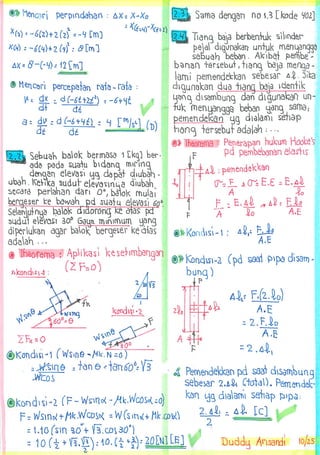 Mencari perpindahan : Δx = X - X₀
X(4) = -6(4)+2(4)² = 8 [m]
Δx = 8-(-4) = 12 [m]
Mencari percepatan rata-rata :
= -6+4t
a = dv/dt = d(-6+4t)/dt = 4 [m/s²] (D)
Sebuah balok bermassa 1 [kg] ber-
ada pada suatu bidang miring
dengan elevasi yg dapat diubah-
ubah. Ketika sudut elevasinya diubah
secara perlahan dari 0°, balok mulai
bergeser ke bawah pd suatu elevasi 60°.
Selanjutnya balok didorong ke atas pd
sudut elevasi 30°. Gaya minimum yang
diperlukan agar balok bergeser ke atas
adalah ...
Theorema : Aplikasi kesetimbangan
(ΣF = 0)
kondisi-1 :
2
√3
1
W sin θ
W cos θ
θ = 60°
ΣFx = 0
kondisi-2
F
W sin α
Kondisi-1 (W sin θ - μk.N = 0)
= W sin θ / W cos θ = tan θ = tan 60° = √3
kondisi-2 (F - W sin α - μk.W cos α = 0)
F = W sin α + μk.W cos α = W (sin α + μk cos α)
= 1.10 (sin 30° + √3.cos 30°)
= 10 (1/2 + √3.√3/2) = 10.(1/2 + 3/2) = 20 [N] [E]
2.3
Sama dengan no 1.3 [kode 402]
2.4
Tiang baja berbentuk silinder
pejal digunakan untuk menyangga
sebuah beban. Akibat pembe-
banan tersebut, tiang baja menga-
lami pemendekkan sebesar ΔL. Jika
digunakan dua tiang baja identik
yang disambung dan digunakan un-
tuk menyangga beban yang sama,
pemendekan yg dialami setiap
tiang tersebut adalah ...
Theorema : Penerapan hukum Hooke's
pd pembebanan elastis
F
Δℓ : pemendekkan
σ = F/A → σ = E.e = E.Δℓ/ℓ₀
F/A = E.Δℓ/ℓ₀ → Δℓ = F.ℓ₀/A.E
Kondisi-1 : Δℓ₁ = F.ℓ₀/A.E
Kondisi-2 (pd saat pipa disam-
bung)
F
2ℓ₀
A
F
Δℓ₂ = F.(2.ℓ₀)/A.E
= 2.F.ℓ₀/A.E
= 2.Δℓ₁
Pemendekkan pd saat disambung
sebesar 2.Δℓ₁ (total). Pemendek-
kan yg dialami setiap pipa.
2.Δℓ₁/2 = Δℓ₁ [C]
Duddy Arisandi 10/25